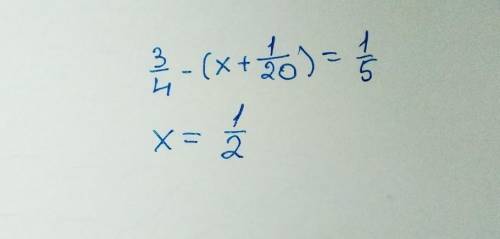 3/4 - (x + 1/20) = 1/5
x = 1/2